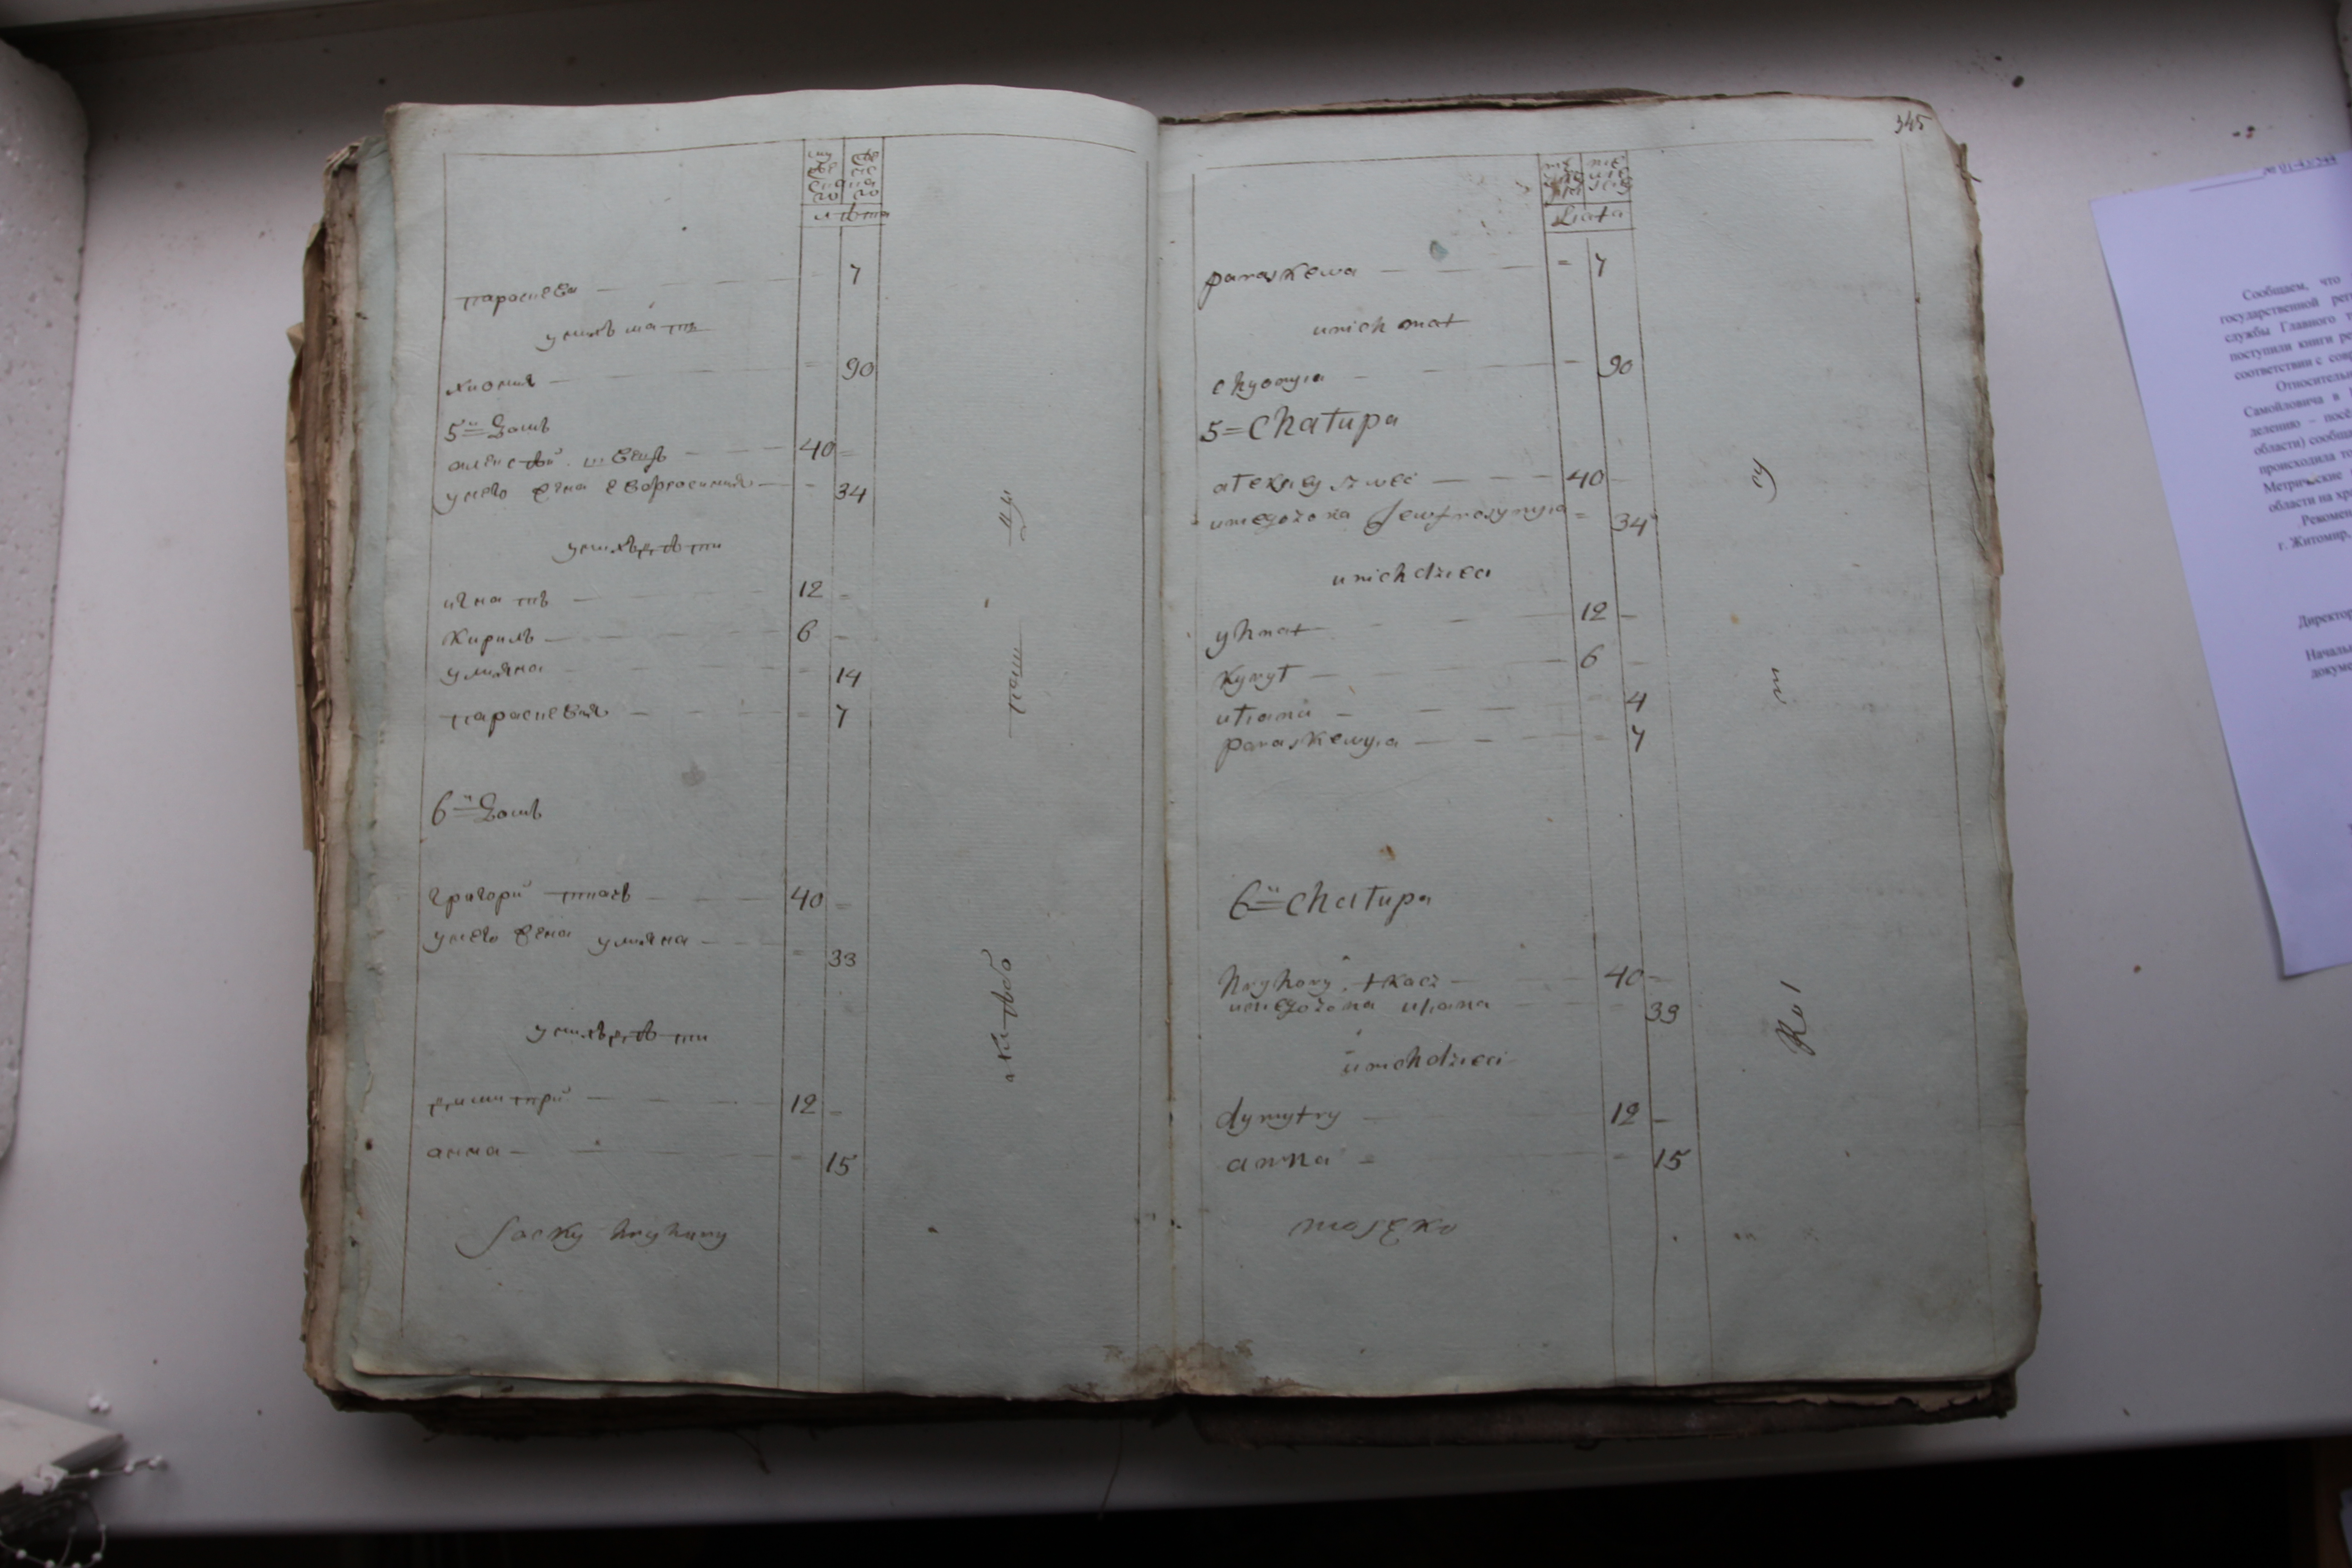 мужескаго женскаго
лѣта
параскева — 7
унихъ мать
хиония — 90
5й = Домъ
алексѣй швецъ — 40
унего жена евфросиния — 34
унихъ дѣти
игнатъ — 12
Кирилъ — 6
улияна — 14
параскевия — 7
6й = Домъ
григорий ткачъ — 40
унего жена улияна — 33
унихъ дѣти
димитрий — 12
анна — 15
Jacky hryhury
345
Liata
paraskewa — = 7
unich mat
chyonyia — 90
5 = Chałupa
ałexiey szwec — 40
uniegożona Jewfrosynyia = 34
unich dzieci
yhnat — 12
Kyrył — 6
uliana — 4
paraskewyia — 7
6ü = chałupa
hryhory tkacz — 40
uniegożona uliana — 39
unich dzieci
dymytry — 12
anna — 15
moszko
Сообщаем, что
государственной рег
службы Главного т
поступили книги ре
соответствии с совр
Относительн
Самойловича в
делению – посё
области) сообщ
происходила то
Метрические
области на хр
Рекомен
г. Житомир,
Директор
Начальн
докуме